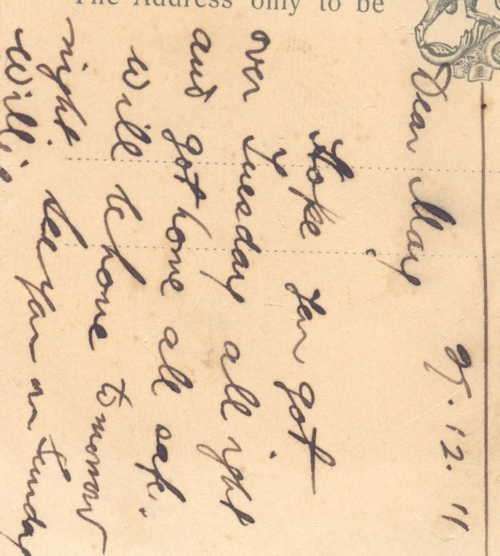 The Address only to be
Dear May
27.12.11
Hope you got
over Tuesday all right
and got home all safe.
Will be home tomorrow
night see you on Sunday
Willie